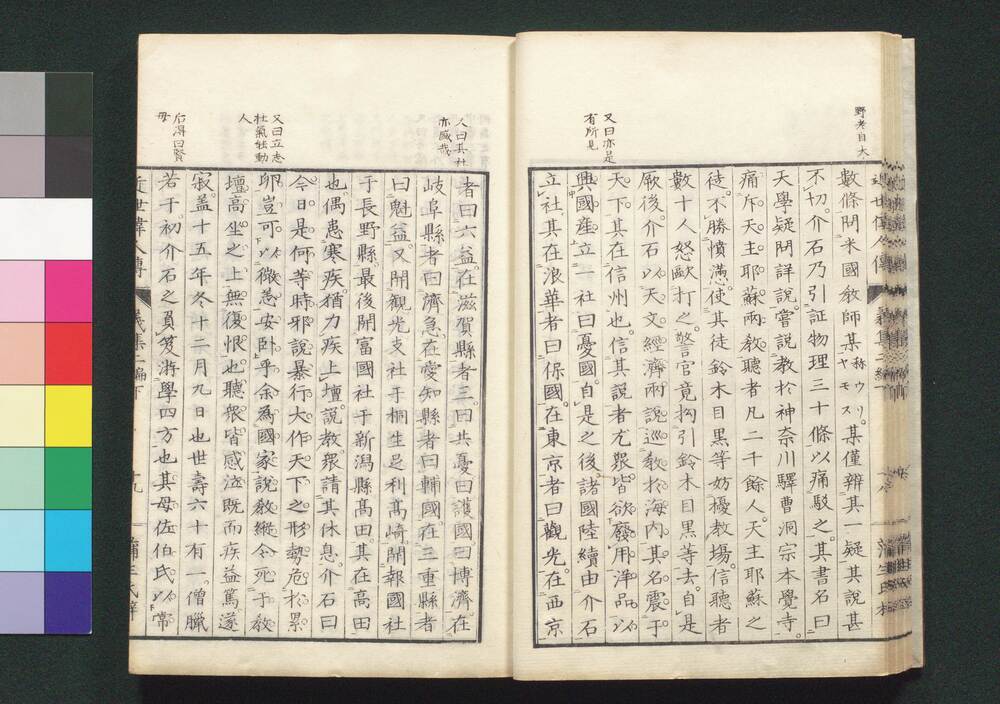 野考自大
又曰亦是
有所見
數條問米國敎師某赫ウリヤモス某僅辨其一疑其說甚
不切介石乃引証物理三十條以痛駁之其書名曰
天學疑問詳說嘗說教於神奈川驛曹洞宗本覺寺
痛斥天主耶蘇兩教聽者凡二千餘人天主耶蘇之
徒不勝憤懣使其徒鈴木目黑等妨擾教場信聽者
數十人怒歐打之警官竟拘引鈴木目黑等去自是
厥後介石以天文經濟兩說巡教於海內其名震于
天下其在信州也信其說者尤衆皆欲廢用洋品以
興國產立一社曰憂國自是之後諸國陸續由介石
立社其在浪華者曰保國在東京者曰觀光在西京
人曰其壯
亦感哉
又曰立志
壯氣能動
人
石得曰賢
母
者曰六益在滋賀縣者三曰共憂曰護國曰博濟在
岐阜縣者曰濟急在愛知縣者曰輔國在三重縣者
曰魁益又開觀光支社于桐生足利高崎開報國社
于長野縣最後開富國社于新潟縣高田其在高田
也偶患寒疾猶力疾上壇說教衆請其休息介石曰
今日是何等時邪說暴行大作天下之形勢危於累
卵豈可以微恙安臥乎余為國家說教縱令死于教
壇高坐之上無復恨也聽衆皆感泣既而疾益篤遂
寂蓋十五年冬十二月九日也世壽六十有一僧臘
若干初介石之負笈游學四方也其母佐伯氏以常
近世偉人傳 義集二編下 十九 蒲生氏梓